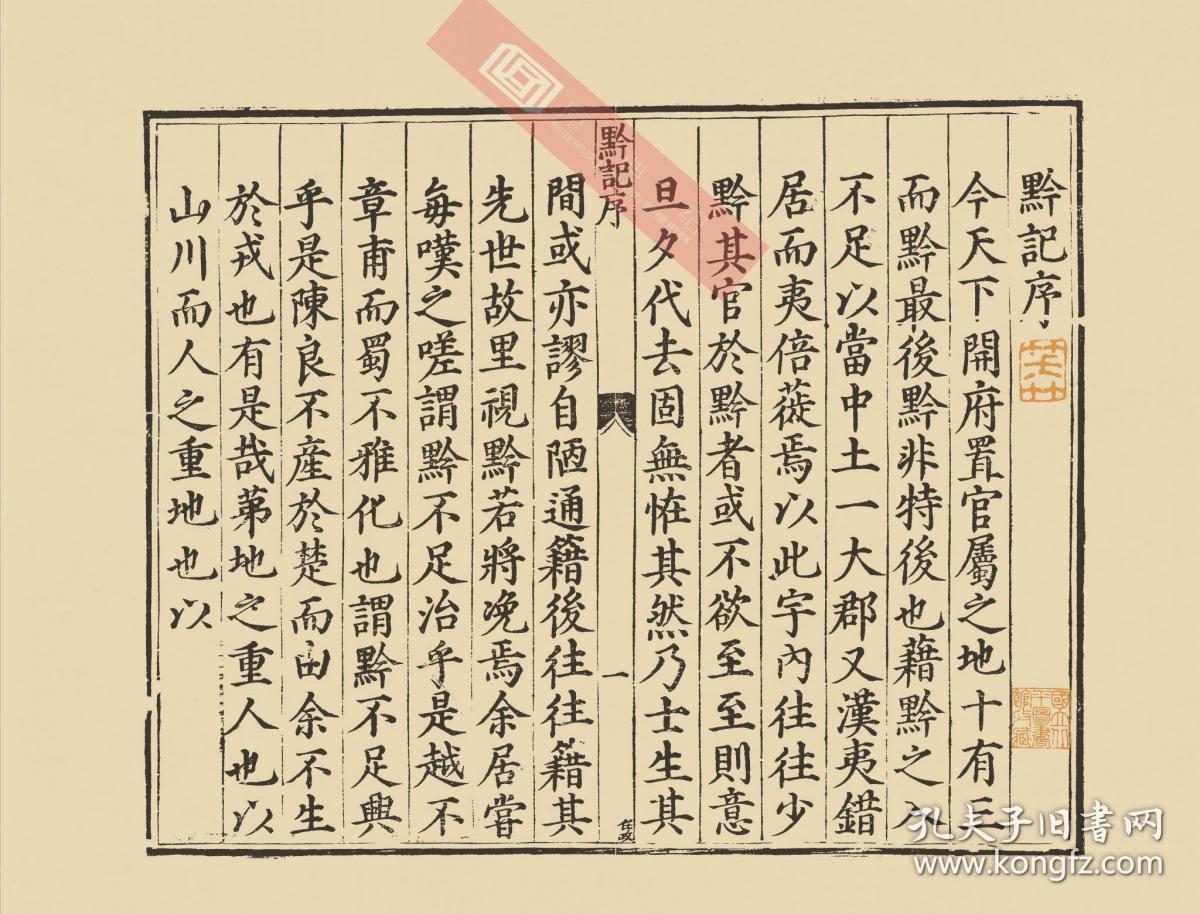 黔記序
今天下開府置官屬之地十有三
而黔最後黔非特後也藉黔之入
不足以當中土一大郡又漢夷錯
居而夷倍蓰焉以此宇內往往少
黔其官於黔者或不欲至至則意
旦夕代去固無恠其然乃士生其
黔記序
一
任政
間或亦謬自陋通籍後往往籍其
先世故里視黔若將浼焉余居嘗
每嘆之嗟謂黔不足治乎是越不
章甫而蜀不雅化也謂黔不足興
乎是陳良不產於楚而由余不生
於戎也有是哉第地之重人也以
山川而人之重地也以
孔夫子旧书网
www.kongfz.com